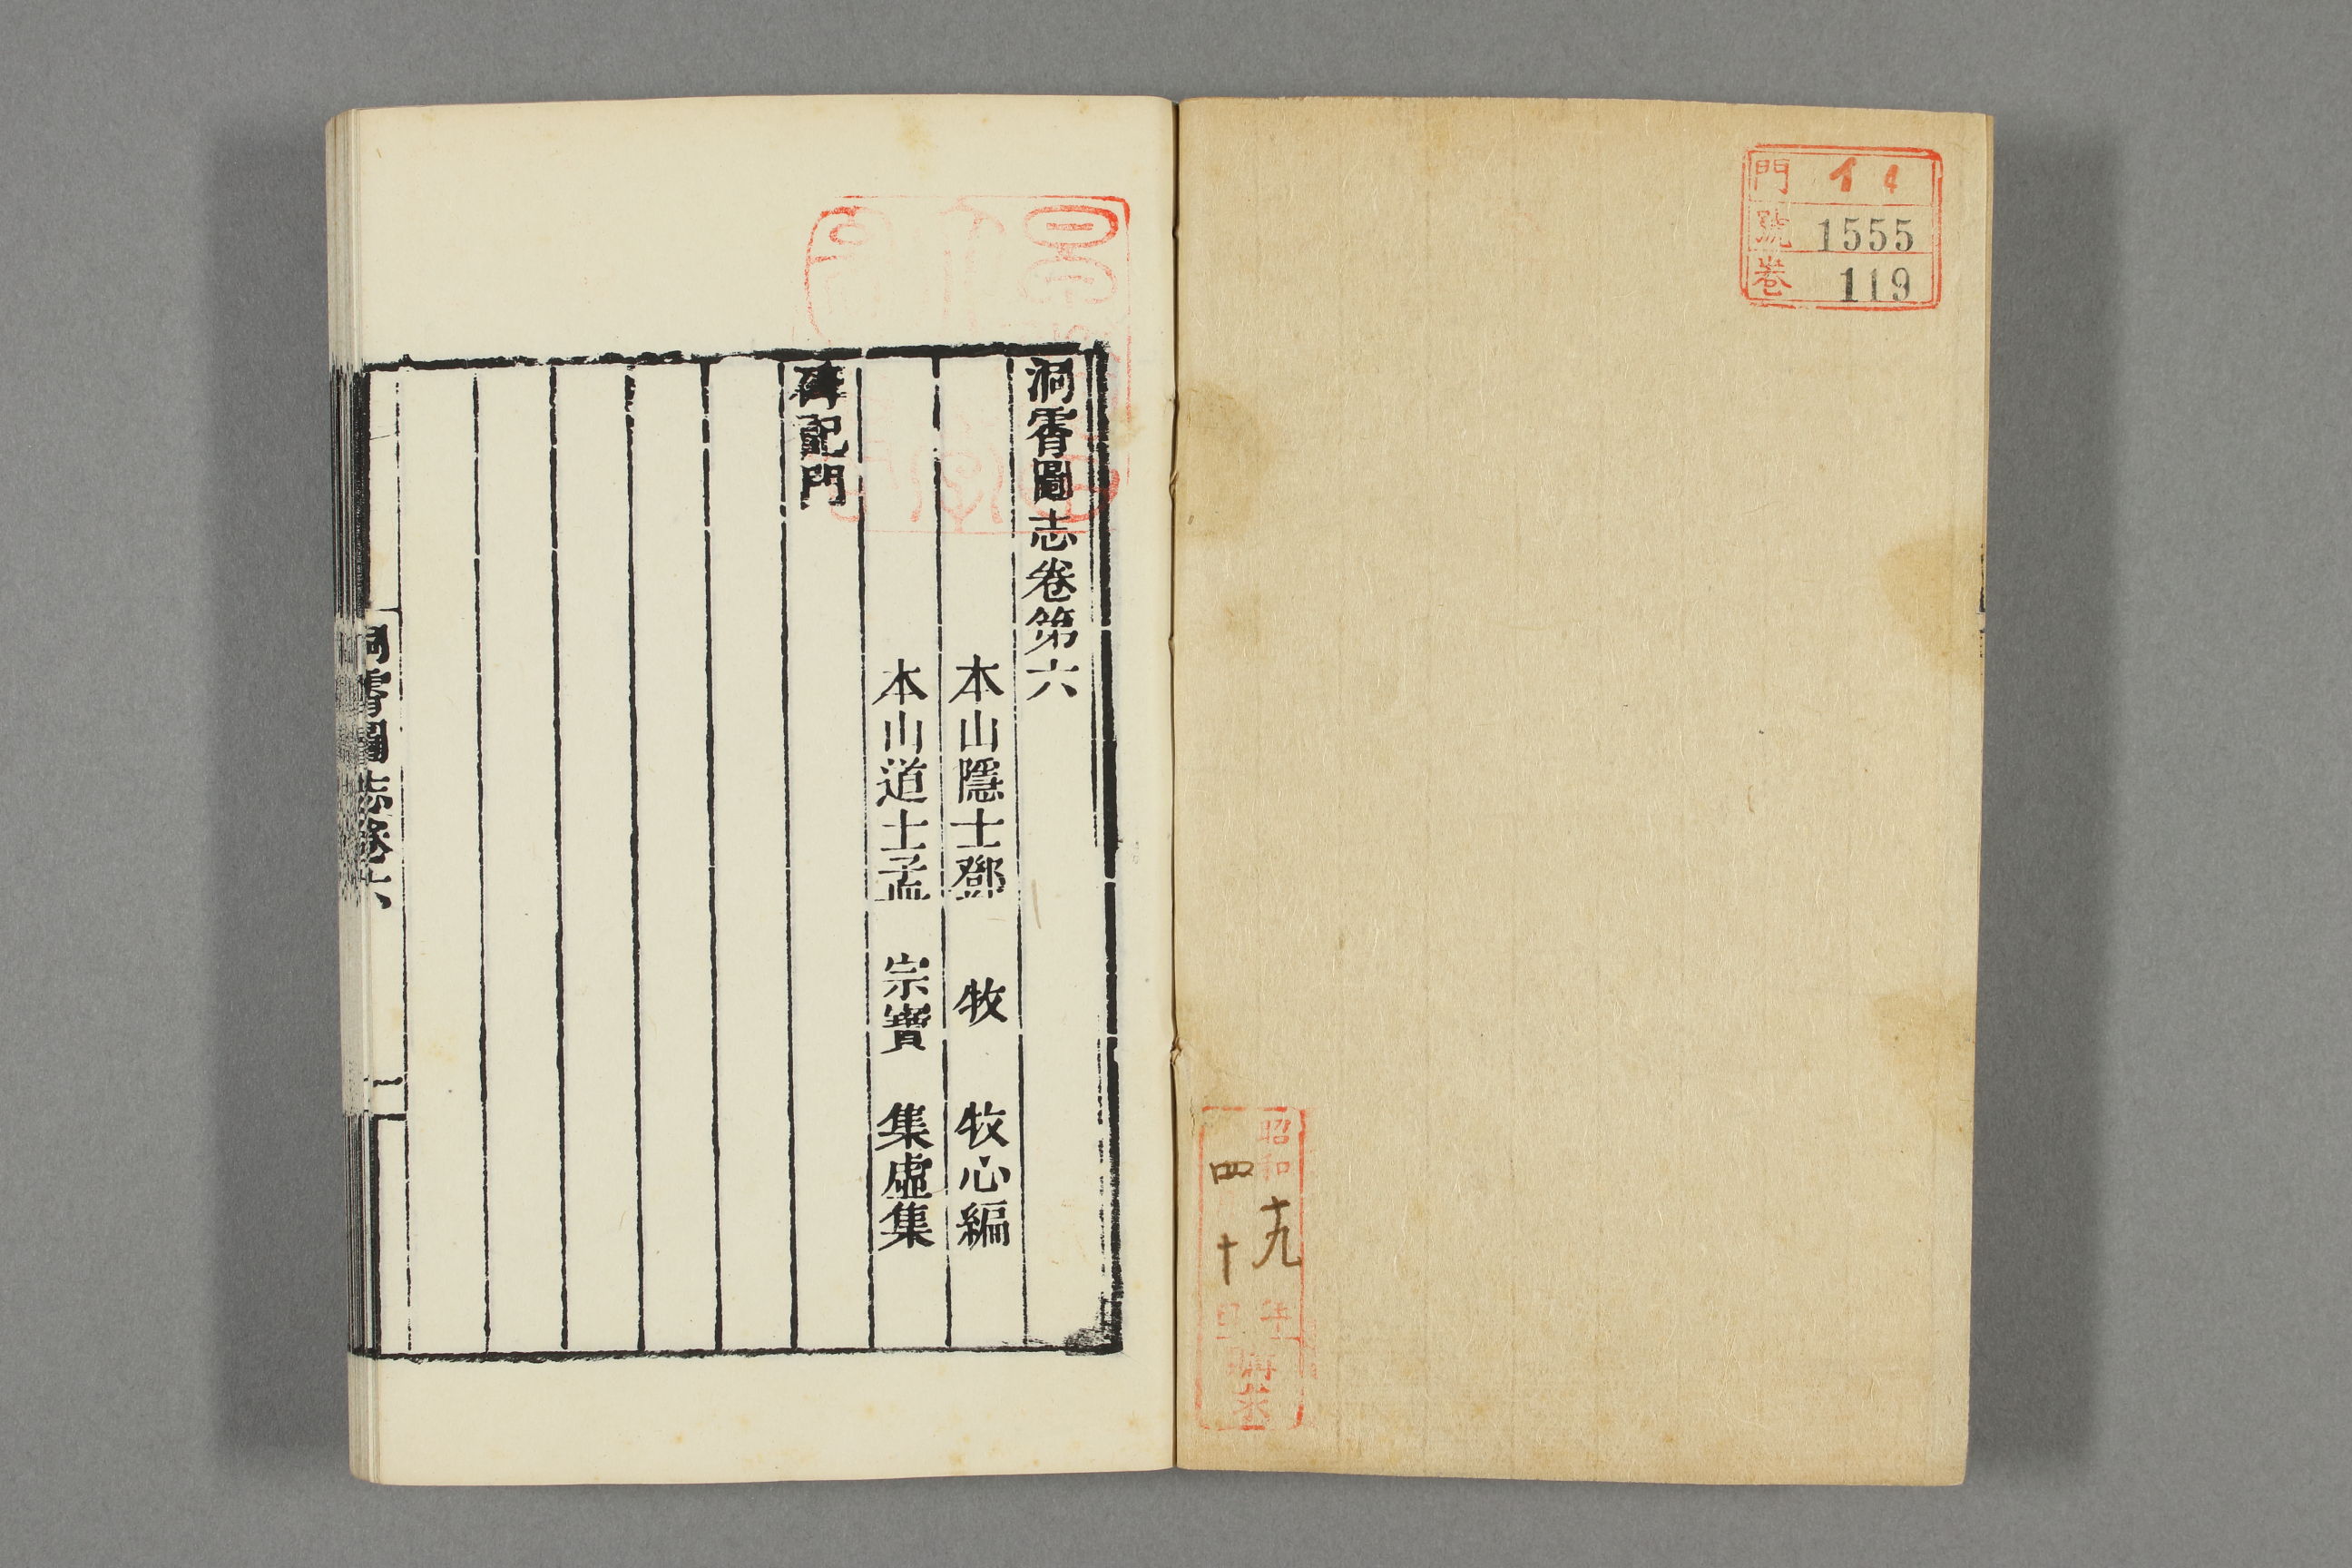 門 イ4
號 1555
卷 119
昭和十九年
四 十日
購求
洞霄圖志卷第六
本山隱士鄧 牧 牧心編
本山道士孟 宗寶 集虛集
碑記門
洞霄圖志卷六
一